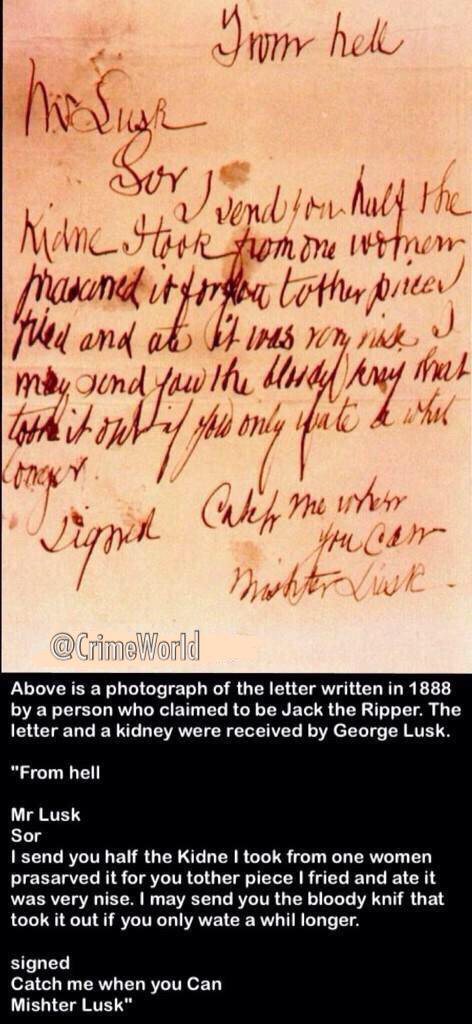 From hell
Mr Lusk
Sor
I send you half the
Kidne I took from one women
prasarved it for you tother piece I
fried and ate it was very nise I
may send you the bloody knif that
took it out if you only wate a whil
longer.
signed
Catch me when
you Can
Mishter Lusk.
@CrimeWorld
Above is a photograph of the letter written in 1888
by a person who claimed to be Jack the Ripper. The
letter and a kidney were received by George Lusk.
"From hell
Mr Lusk
Sor
I send you half the Kidne I took from one women
prasarved it for you tother piece I fried and ate it
was very nise. I may send you the bloody knif that
took it out if you only wate a whil longer.
signed
Catch me when you Can
Mishter Lusk"